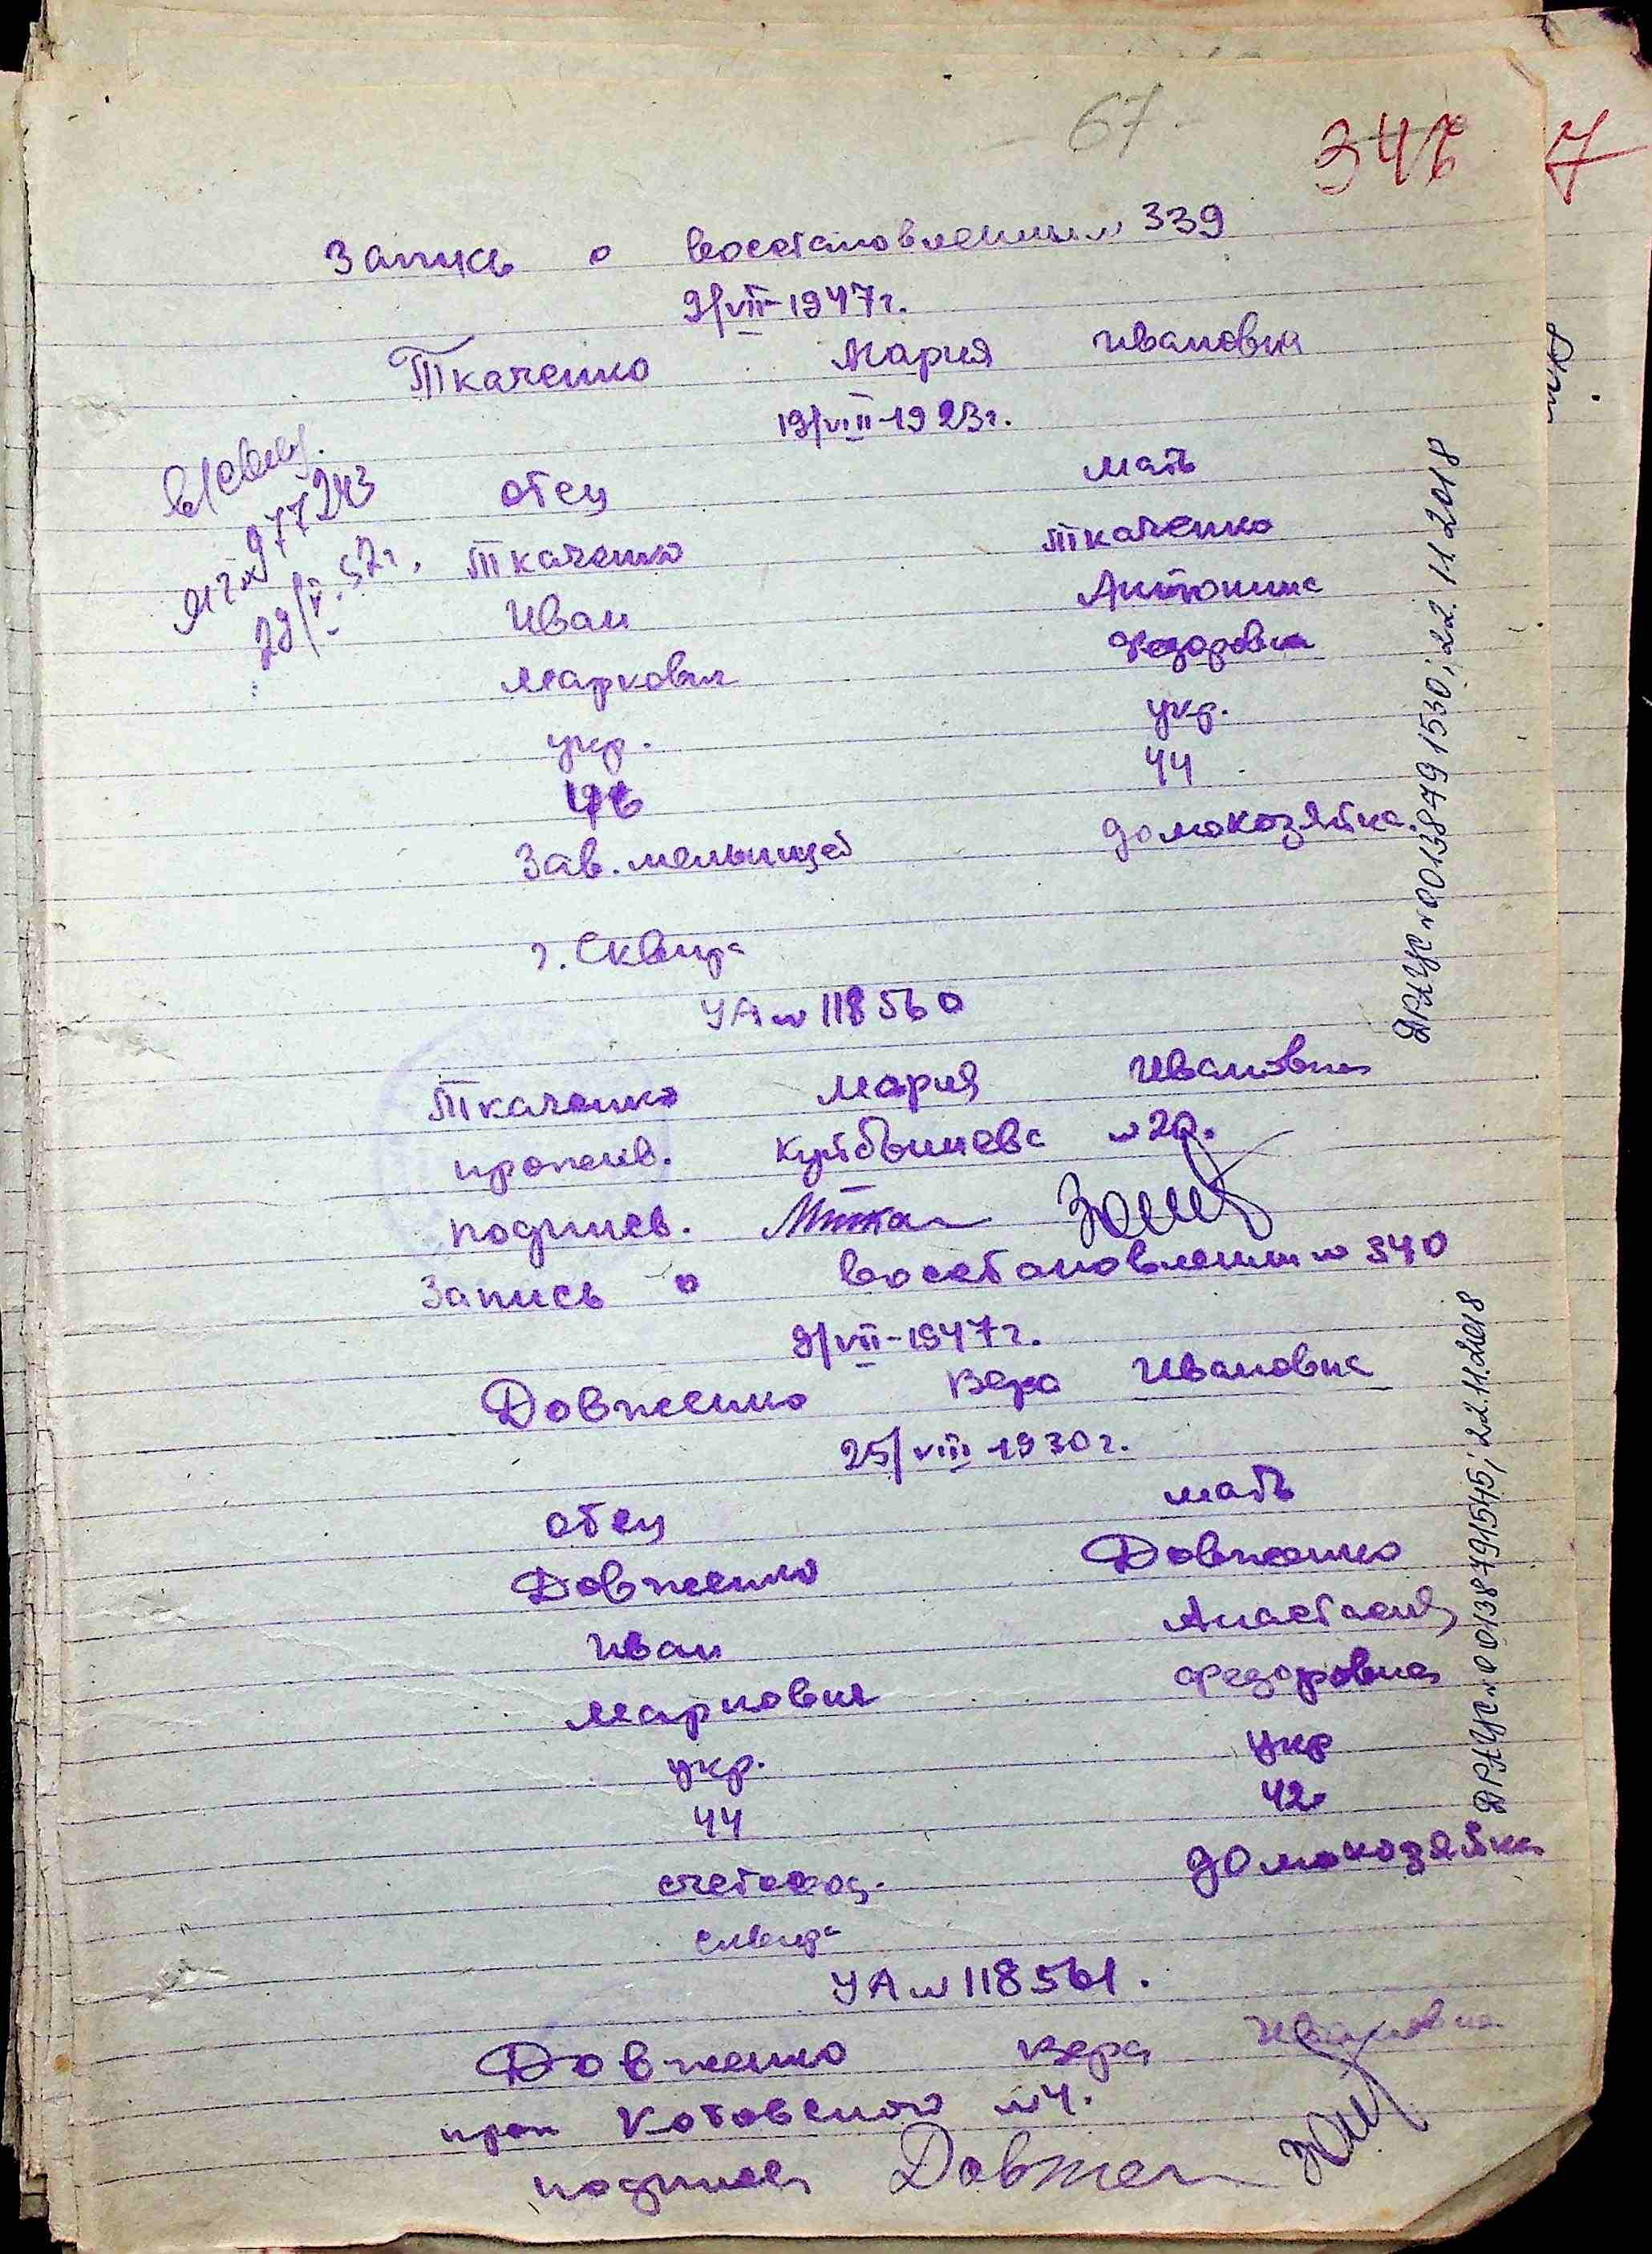 - 67 -
346 7
Запись о восстановлении № 339
9/VII-1947г.
Ткаченко Мария Ивановна
19/VIII-1923г.
отец мать
Ткаченко Ткаченко
Иван Антонина
Маркович Федоровна
укр. укр.
46 44
Зав. мельницей домохозяйка.
г. Сквира
УА № 118560
Ткаченко Мария Ивановна
прожив. Куйбышева № 20.
подпись.
Запись о восстановлении № 340
9/VII-1947г.
Довженко Вера Ивановна
25/VIII-1930г.
отец мать
Довженко Довженко
Иван Анастасия
Маркович Федоровна
укр. укр
44 42
счетовод. домохозяйка
Сквира
УА № 118561.
Довженко Вера Ивановна
прож Котовского № 4.
подпись Довжен
№ 977243
29/V.52г.
ДРАЦС № 00138791530; 22.11.2018
ДРАЦС № 00138791545; 22.11.2018